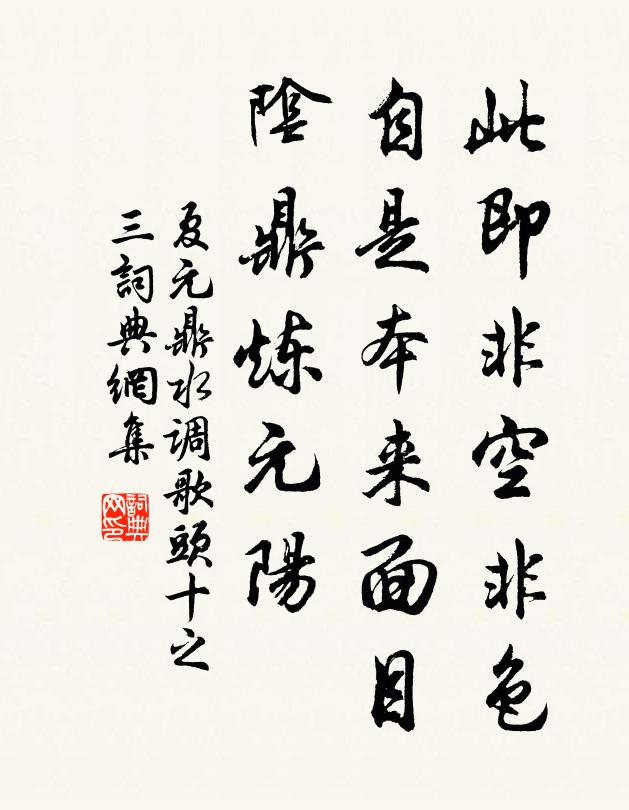 此即非空非色
自是本来面目
陰鼎炼元陽
夏元鼎水调歌頭十之
三詞典網集
詞典网印